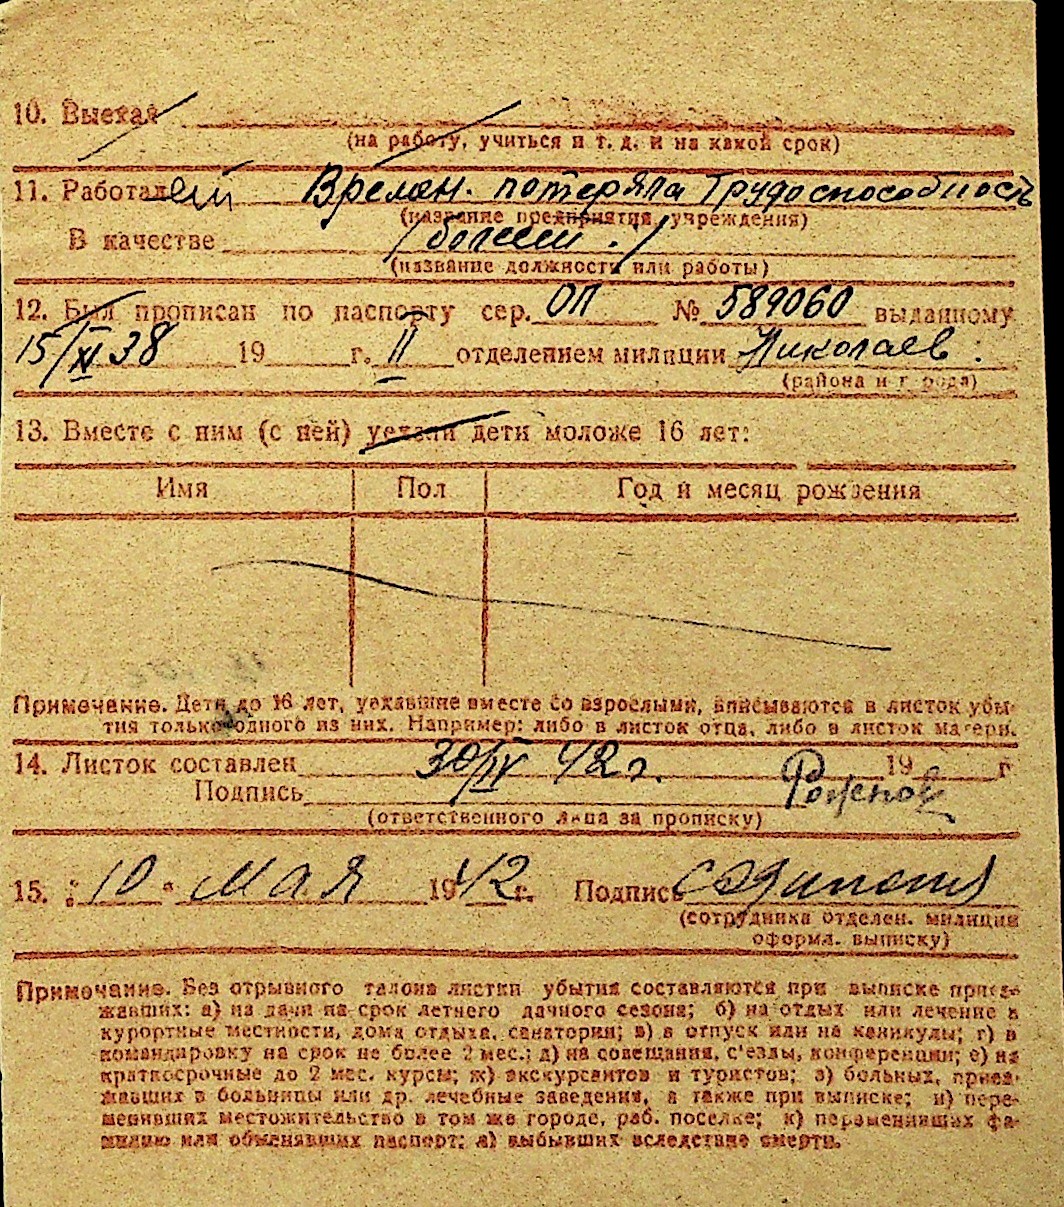 10. Выехал
(на работу, учиться и т. д. и на какой срок)
11. Работал Времен. потеряла Трудоспособность
(название предприятия, учреждения)
В качестве
(название должности или работы)
12. Был прописан по паспорту сер. ОП № 589060 выданному
15/XI 38 19 г. II отделением милиции Николаев.
(района и города)
13. Вместе с ним (с ней) уехали дети моложе 16 лет:
Имя Пол Год и месяц рождения
Примечание. Дети до 16 лет, уехавшие вместе со взрослыми, вписываются в листок убы-
тия только одного из них. Например: либо в листок отца, либо в листок матери.
14. Листок составлен 30/IV 42 г. 19 г
Подпись
(ответственного лица за прописку)
15. „10“ мая 1942 г. Подпись
(сотрудника отделен. милиции
оформл. выписку)
Примечание. Без отрывного талона листки убытия составляются при выписке приез-
жавших: а) на дачи на срок летнего дачного сезона; б) на отдых или лечение в
курортные местности, дома отдыха, санатории; в) в отпуск или на каникулы; г) в
командировку на срок не более 2 мес.; д) на совещания, с'езды, конференции; е) на
краткосрочные до 2 мес. курсы; ж) экскурсантов и туристов; з) больных, приез-
жавших в больницы или др. лечебные заведения, а также при выписке; и) пере-
менивших местожительство в том же городе, раб. поселке; к) переменивших фа-
милию или обменявших паспорт; л) выбывших вследствие смерти.